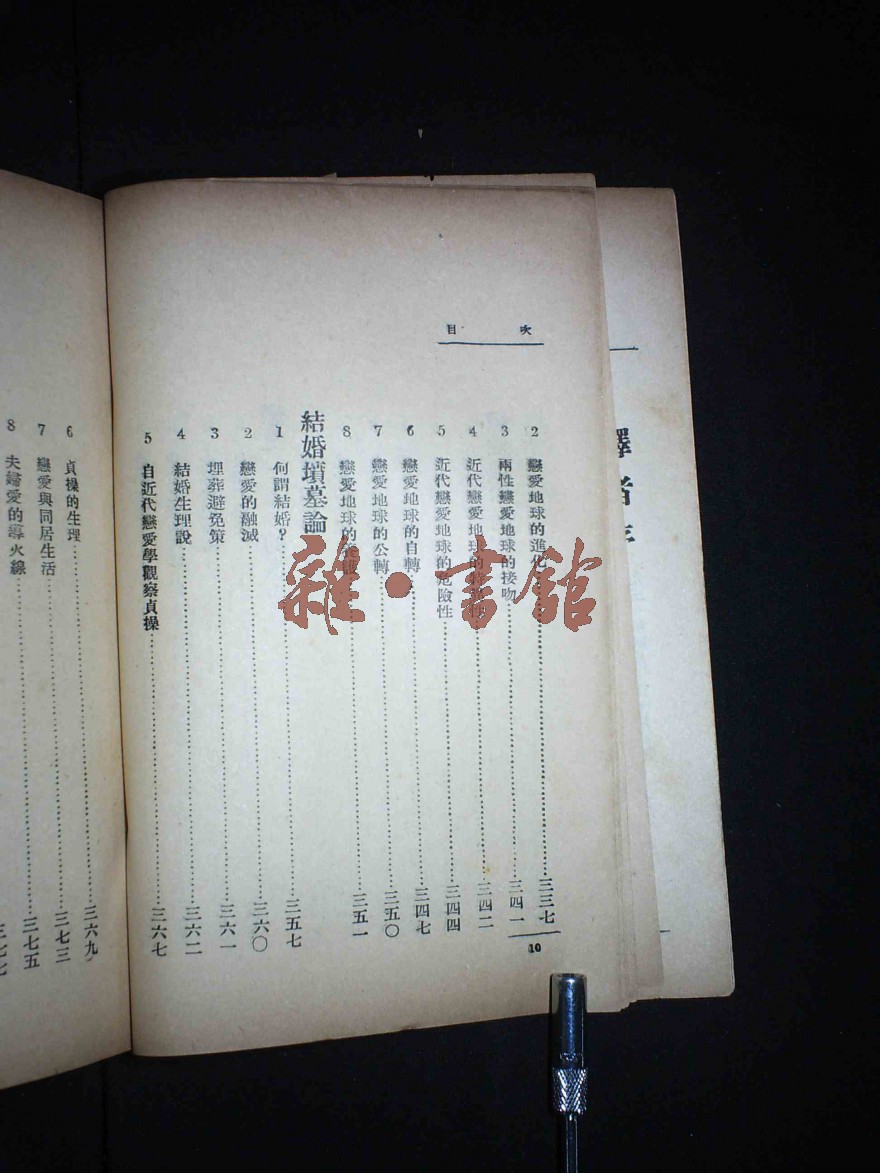 目次
2 戀愛地球的進化……三三七
3 兩性戀愛地球的接吻……三四一
4 近代戀愛地球的……三四二
5 近代戀愛地球的危險性……三四四
6 戀愛地球的自轉……三四七
7 戀愛地球的公轉……三五〇
8 戀愛地球的……三五一
結婚墳墓論
1 何謂結婚?……三五七
2 戀愛的融滅……三六〇
3 埋葬避免策……三六一
4 結婚生理說……三六二
5 自近代戀愛學觀察貞操……三六七
10
6 貞操的生理……三六九
7 戀愛與同居生活……三七三
8 夫婦愛的導火線……三七五
三七七
譯者序
雜·書館